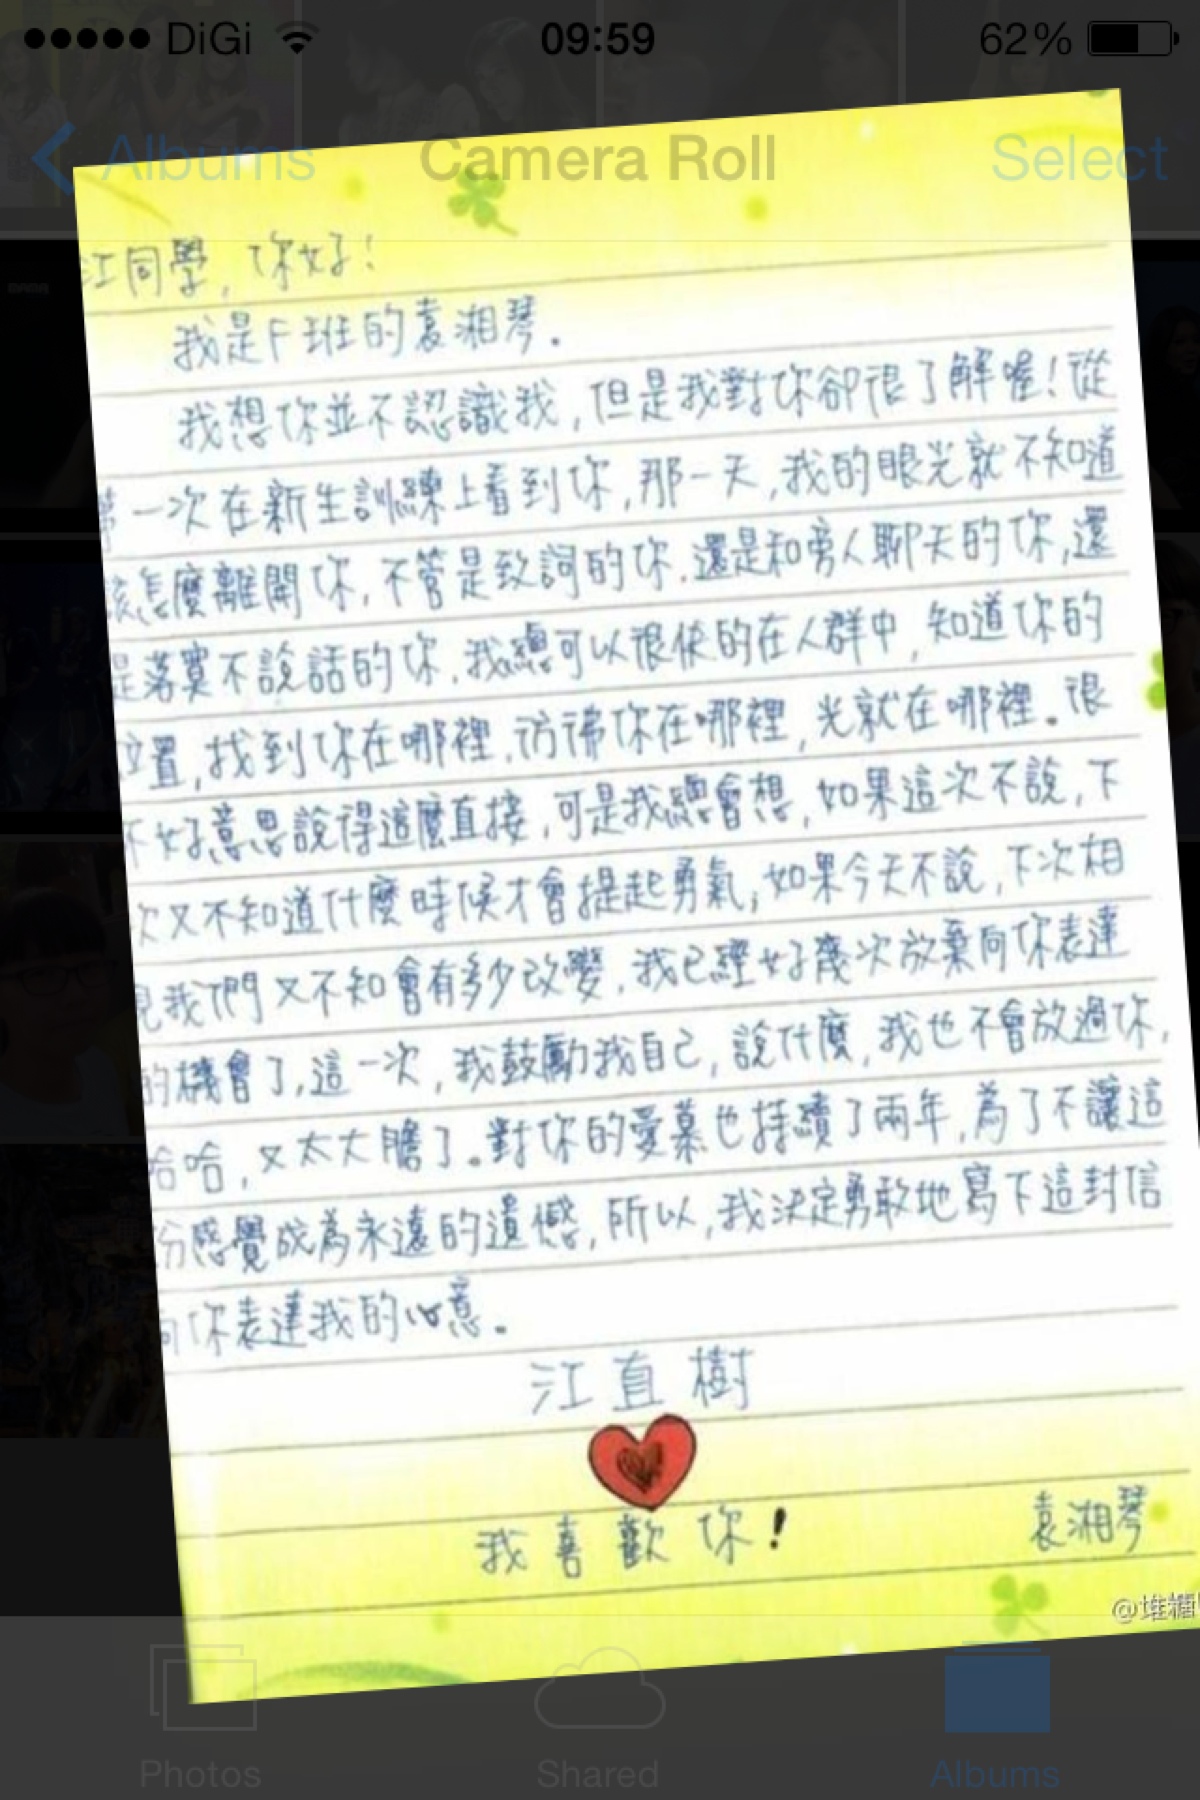 DiGi 09:59 62%
Albums Camera Roll Select
江同學,你好!
我是F班的袁湘琴.
我想你並不認識我,但是我對你卻很了解喔!從
第一次在新生訓練上看到你,那一天,我的眼光就不知道
該怎麼離開你,不管是致詞的你.還是和旁人聊天的你,還
是落寞不說話的你.我總可以很快的在人群中,知道你的
位置,找到你在哪裡.彷彿你在哪裡,光就在哪裡。很
不好意思說得這麼直接,可是我總會想,如果這次不說,下
次又不知道什麼時候才會提起勇氣;如果今天不說,下次相
見我們又不知會有多少改變.我已經好幾次放棄向你表達
的機會了,這一次,我鼓勵我自己,說什麼,我也不會放過你,
哈哈,又太大膽了。對你的愛慕也持續了兩年,為了不讓這
份感覺成為永遠的遺憾,所以,我決定勇敢地寫下這封信
向你表達我的心意。
江直樹
我喜歡你!
袁湘琴
Photos Shared Albums